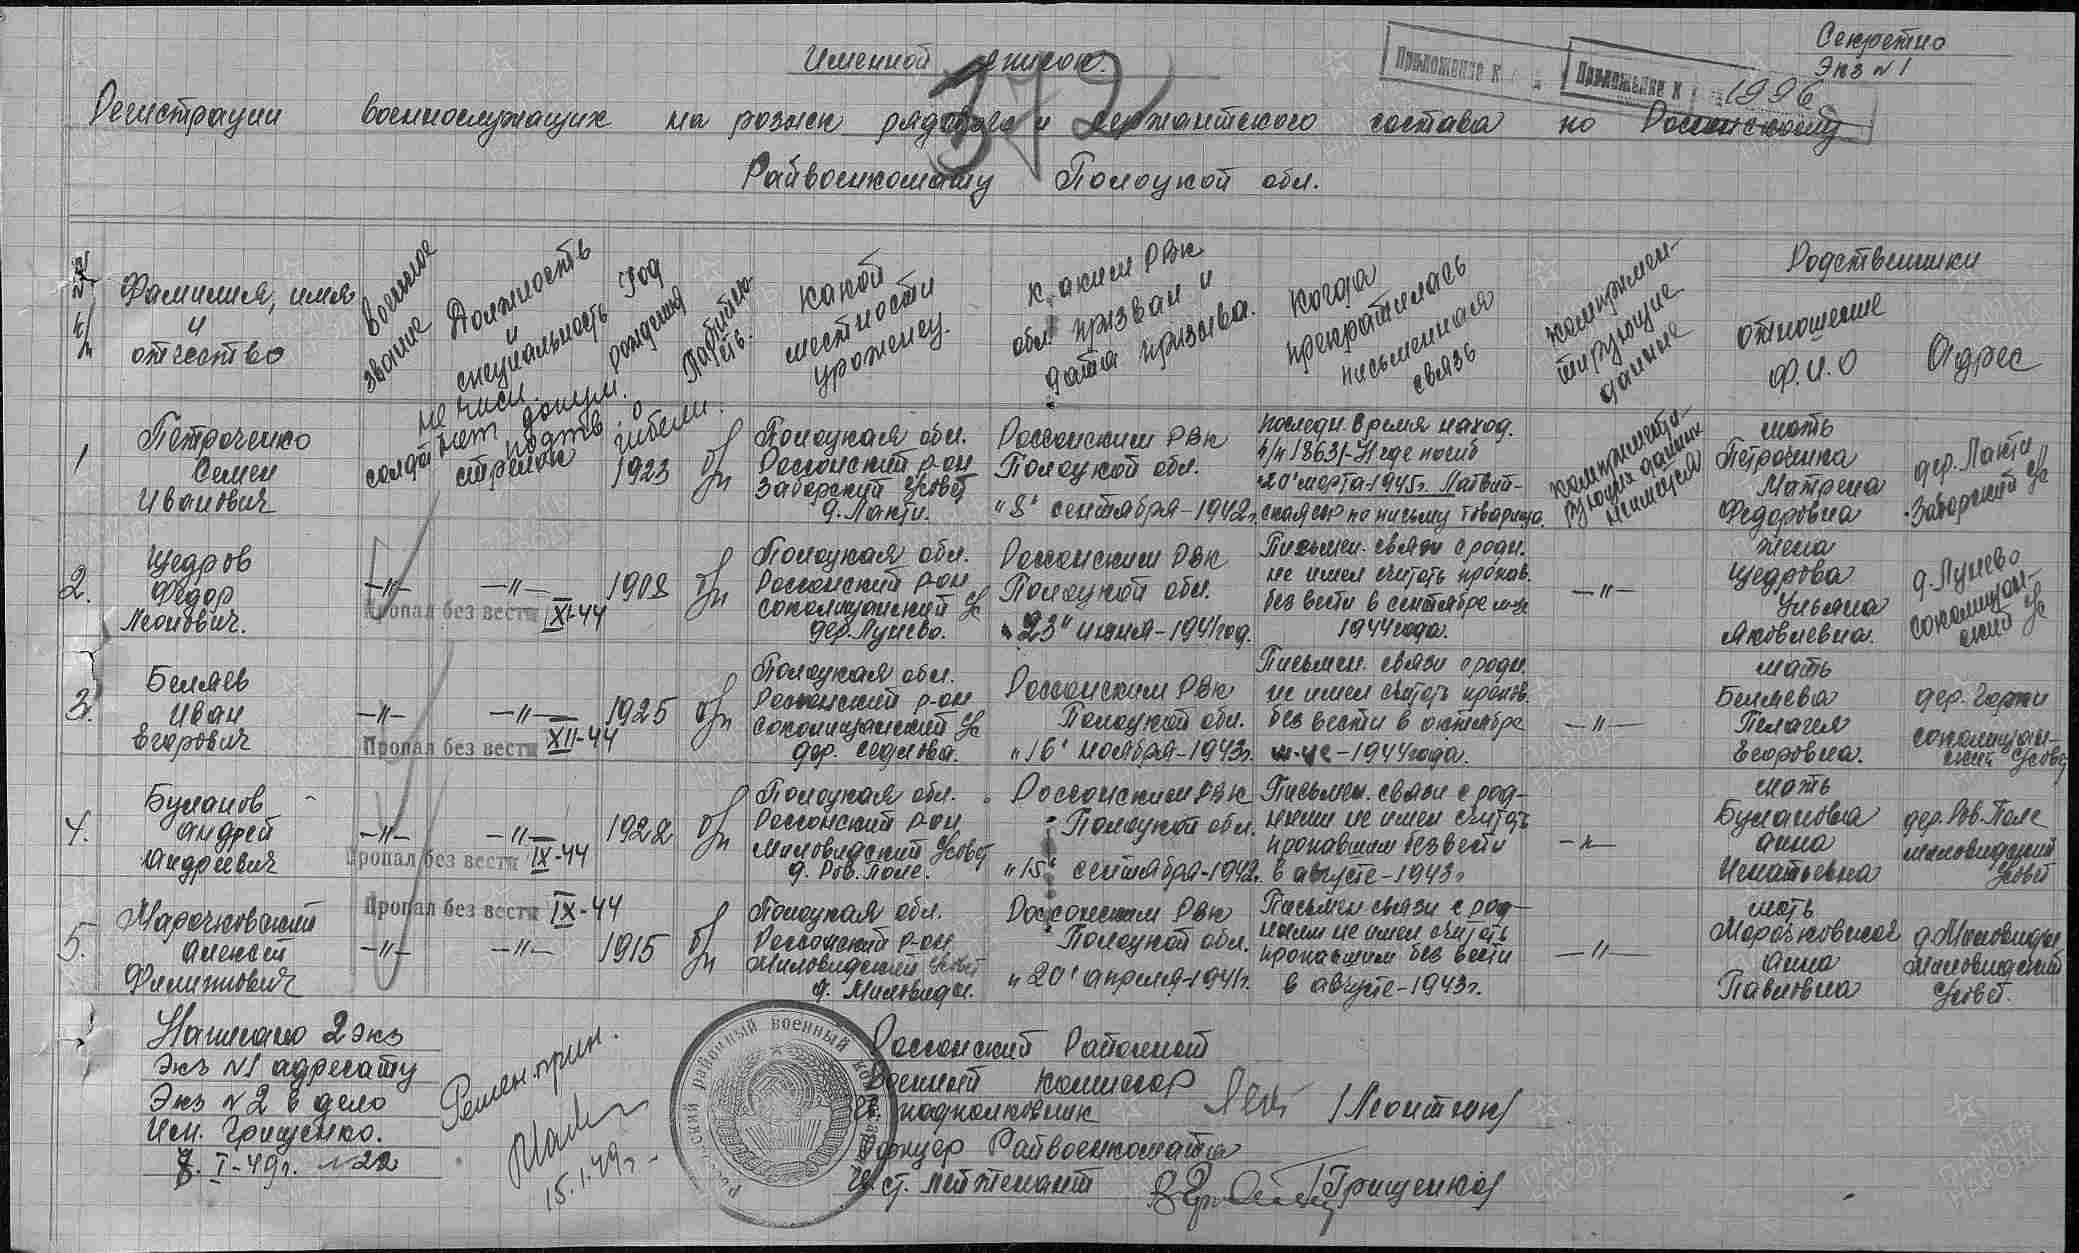 Секретно
Экз № 1
Приложение к
Приложение к
1996
372
Именной список.
Регистрации военнослужащих на розыск рядового и сержантского состава по Россонскому
Райвоенкомату Полоцкой обл.
Фамилия, имя и отчество
Военное звание
Должность и специальность
Год рождения
Партийность.
Какой местности уроженец.
Каким РВК обл. призван и дата призыва.
Когда прекратилась письменная связь
Компрометирующие данные
Родственники
отношение Ф.И.О
Адрес
1
Петроченко
Семен
Иванович
солдат
стрелок
нет докум. подтв. о гибели.
1923
б/п
Полоцкая обл.
Россонский р-он
Заборский с/совет
д. Лакти.
Россонским РВК
Полоцкой обл.
"8" сентября-1942г.
последн. время наход.
п/п 18631-Н где погиб
"20" марта-1945г. Латвий-
ская сср по письму товарища.
компромети-
рующих данных
не имеется
мать
Петрочена
Матрена
Федоровна
дер. Лакти
Заборский с/с
2.
Щедров
Федор
Леонович.
-"-
-"-
Пропал без вести XI-44
1908
б/п
Полоцкая обл.
Россонский р-он
Соколищанский с/с
дер. Лунево.
Россонским РВК
Полоцкой обл.
"23" июня-1941год.
Письмен. связи с родн.
не имел считать пропав.
без вести в сентябре м-це
1944 года.
-"-
жена
Щедрова
Ульяна
Яковлевна.
д. Лунево
Соколищан-
ский с/с
3.
Беляев
Иван
Егорович
-"-
-"-
Пропал без вести XII-44
1925
б/п
Полоцкая обл.
Россонский р-он
Соколищанский с/с
дер.
Россонским РВК
Полоцкой обл.
"16" ноября-1943г.
Письмен. связи с родн.
не имел считать пропав.
без вести в октябре
м-це-1944 года.
-"-
мать
Беляева
Пелагея
Егоровна.
дер. Горки
Соколищан-
ский с/совет
4.
Буланов
Андрей
Андреевич
-"-
-"-
Пропал без вести IX-44
1922
б/п
Полоцкая обл.
Россонский р-он
Миловидский с/совет
д. Ров. Поле.
Россонским РВК
Полоцкой обл.
"15" сентября-1942г.
Письмен. связи с род-
ными не имел считать
пропавшим без вести
в августе-1943г
-"-
мать
Буланова
Анна
Игнатьевна
дер. Ров. Поле
Миловидский
с/совет
5.
Марочковский
Алексей
Филиппович
-"-
-"-
Пропал без вести IX-44
1915
б/п
Полоцкая обл.
Россонский р-он
Миловидский с/совет
д. Миловиды.
Россонским РВК
Полоцкой обл.
"20" апреля-1941г.
Письмен связи с род-
ными не имел считать
пропавшим без вести
в августе-1943г.
-"-
мать
Марочковская
Анна
Павловна
д. Миловиды
Миловидский
с/совет.
Написано 2 экз
Экз №1 адресату
Экз №2 в дело
Исп. Грищенко.
7. I-49г. №22
15.1.49г.
Россонский районный военный комиссариат
Россонский Районный
Военный Комиссар
Гв. подполковник /Леонтюк/
Офицер Райвоенкомата
Гв. ст. лейтенант /Грищенко/
ПАМЯТЬ НАРОДА